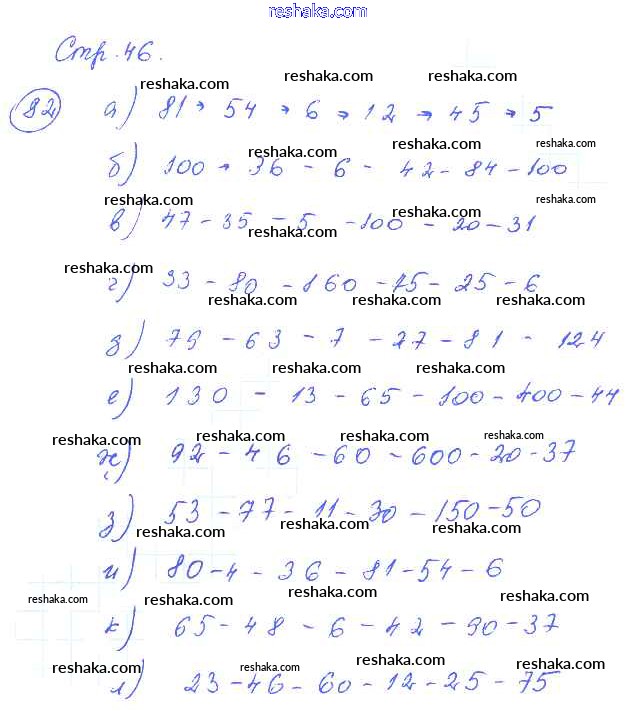 reshaka.com
Стр. 46.
reshaka.com reshaka.com reshaka.com
92 а) 81 → 54 → 6 → 12 → 45 → 5
reshaka.com reshaka.com reshaka.com
б) 100 → 36 - 6 - 42 - 84 - 100
reshaka.com reshaka.com reshaka.com
в) 47 - 35 - 5 - 100 - 20 - 31
reshaka.com reshaka.com
г) 93 - 80 - 160 - 75 - 25 - 6
reshaka.com reshaka.com reshaka.com
д) 79 - 63 - 7 - 27 - 81 - 124
reshaka.com reshaka.com reshaka.com
е) 130 - 13 - 65 - 100 - 400 - 44
reshaka.com reshaka.com reshaka.com reshaka.com
ж) 92 - 46 - 60 - 600 - 20 - 37
з) 53 - 77 - 11 - 30 - 150 - 50
reshaka.com reshaka.com reshaka.com
и) 80 - 4 - 36 - 81 - 54 - 6
reshaka.com reshaka.com reshaka.com reshaka.com
к) 65 - 48 - 6 - 42 - 90 - 37
reshaka.com reshaka.com reshaka.com reshaka.com
л) 23 - 46 - 60 - 12 - 25 - 75
reshaka.com reshaka.com